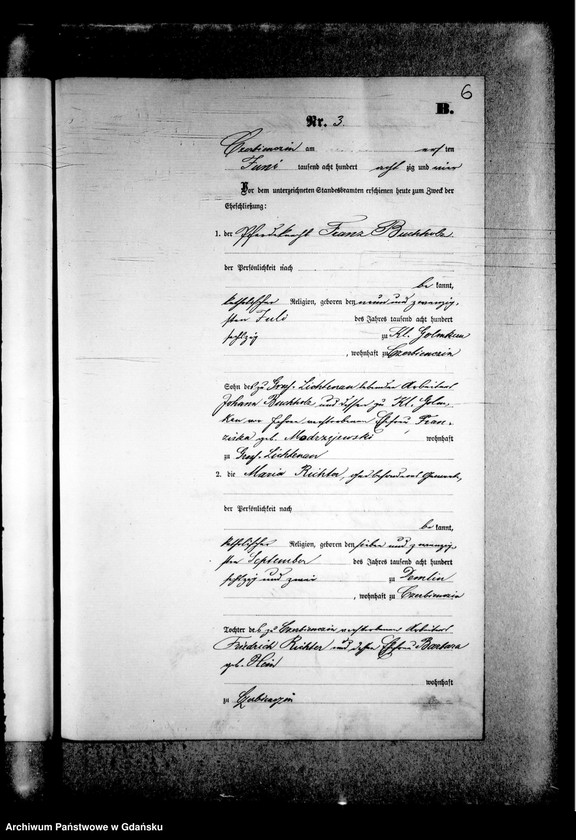 6
B.
Nr. 3.
am ten
Juni tausend acht hundert acht zig und
Vor dem unterzeichneten Standesbeamten erschienen heute zum Zweck der
Eheschließung:
1. der Pferdeknecht Franz Buchholz
der Persönlichkeit nach
be kannt,
katholischer Religion, geboren den neun und zwanzig
sten Juli des Jahres tausend acht hundert
sechszig zu Kl. Golmkau
, wohnhaft zu
Sohn des zu Groß Lichtenau lebenden Arbeiters
Johann Buchholz und dessen zu Kl. Golm-
kau vor verstorbenen Ehefrau Fran-
ziska geb. wohnhaft
zu Groß Lichtenau
2. die Maria Richter, ohne besonderes Gewerbe,
der Persönlichkeit nach
be kannt,
katholischer Religion, geboren den sieben und zwanzig
sten September des Jahres tausend acht hundert
sechszig und zwei zu Demlin
, wohnhaft zu
Tochter des zu verstorbenen Arbeiters
Friedrich Richter und dessen Ehefrau Barbara
geb.
wohnhaft
zu
Archiwum Państwowe w Gdańsku